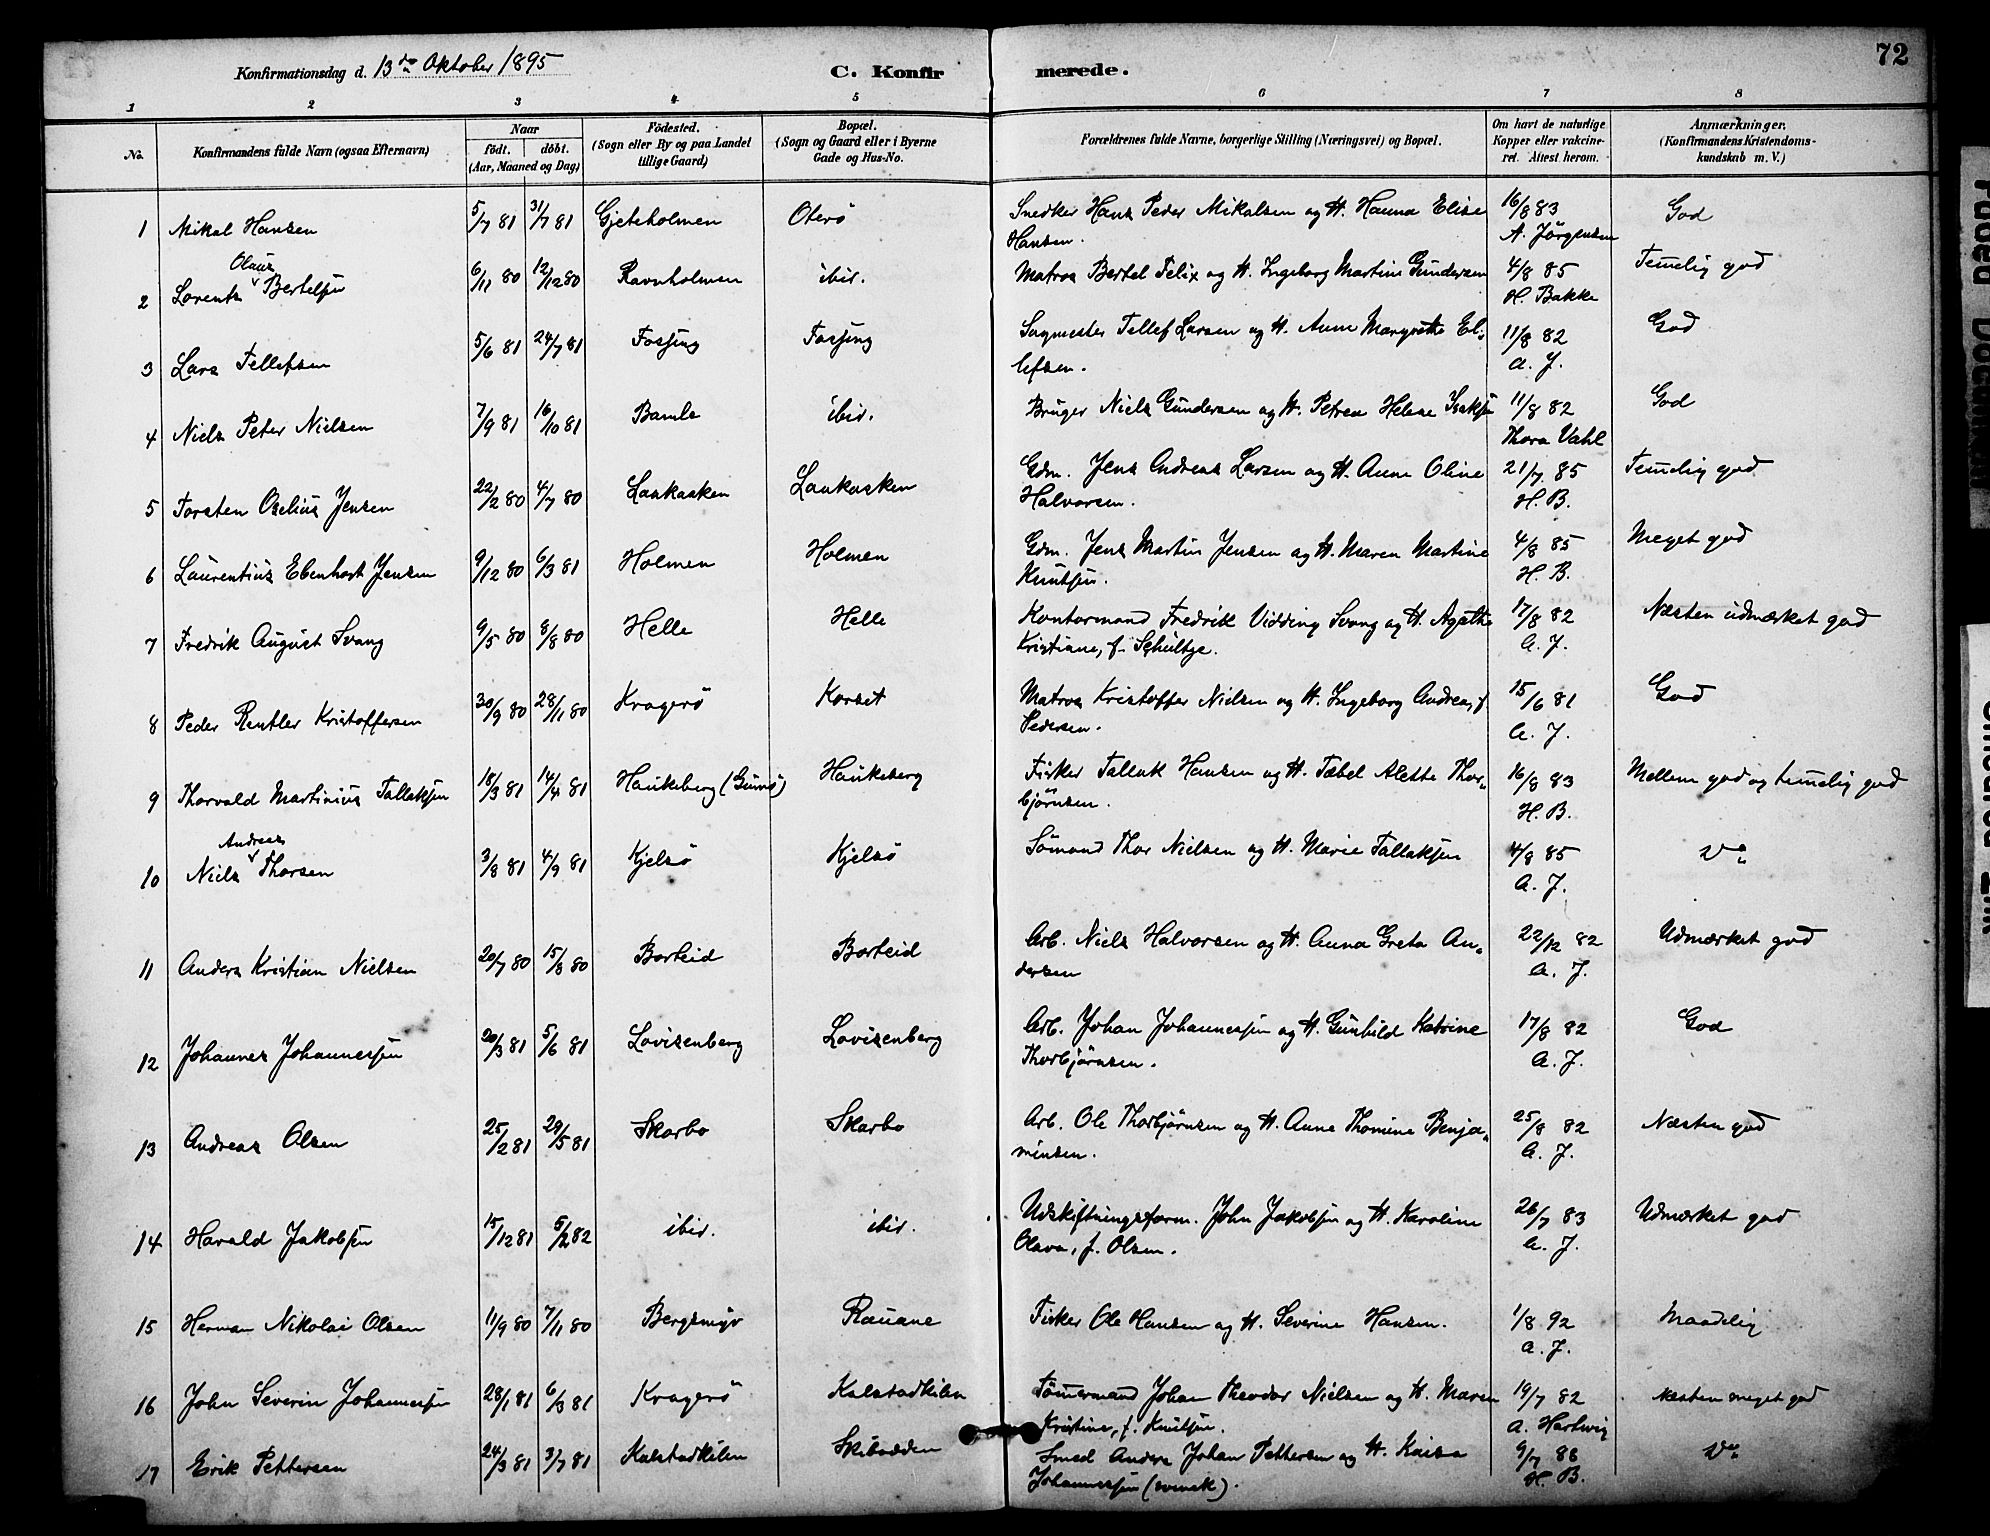 72
Konfirmationsdag d. 13de Oktober 1895
C. Konfirmerede.
1 2 3 4 5 6 7 8
No.
Konfirmandens fulde Navn (ogsaa Efternavn)
Naar
födt. döbt.
(Aar, Maaned og Dag)
Födested.
(Sogn eller By og paa Landet
tillige Gaard)
Bopæl.
(Sogn og Gaard eller i Byerne
Gade og Hus-No.
Forældrenes fulde Navne, borgerlige Stilling (Næringsvei) og Bopæl.
Om havt de naturlige
Kopper eller vakcine-
ret. Attest herom.
Anmærkninger.
(Konfirmandens Kristendoms-
kundskab m. V.)
1 Mikal Hansen 5/7 81 31/7 81 Gjeteholmen Oterö Snedker Hans Peder Mikalsen og H. Hanna Elise 16/8 83 God
Hansen. A. Jörgensen
Olaus
2 Lorents Bertelsen 6/11 80 12/12 80 Ravnholmen ibid. Matros Bertel Felix og H. Ingeborg Martine Gundersen 4/8 85 Temelig god
H. Bakke
3 Lars Tellefsen 5/6 81 24/7 81 Fossing Fossing Sagmester Tellef Larsen og H. Anne Margrethe El- 11/8 82 God
lefsen. A. J.
4 Niels Peter Nielsen 7/9 81 16/10 81 Bamle ibid. Bruger Niels Gundersen og H. Petrea Helene Isaksen 11/8 82 God
Thora Vahl
5 Torsten Oselius Jensen 22/2 80 4/7 80 Laukasken Laukasken Gdm. Jens Andreas Larsen og H. Anne Oline 21/7 85 Temelig god
Halvorsen. H. B.
6 Laurentius Ebenhart Jensen 9/12 80 6/3 81 Holmen Holmen Gdm. Jens Martin Jensen og H. Maren Martine 4/8 85 Meget god
Knutsen. H. B.
7 Fredrik August Svang 9/5 80 8/8 80 Helle Helle Kontormand Fredrik Vidding Svang og H. Agathe 17/8 82 Næsten udmærket god
Kristiane, f. Schultze. A. J.
8 Peder Rentler Kristoffersen 30/9 80 28/11 80 Kragerö Korset Matros Kristoffer Nielsen og H. Ingeborg Andrea, f. 15/6 81 God
Pedersen. A. J.
9 Thorvald Martinius Tallaksen 18/3 81 14/4 81 Haukeberg (Gumö) Haukeberg Fisker Tallak Hansen og H. Tabel Alette Thor- 16/8 83 Mellem god og temelig god
björnsen. H. B.
Andreas
10 Niels Thorsen 3/8 81 4/9 81 Kjelsö Kjelsö Sömand Thor Nielsen og H. Marie Tallaksen 4/8 85
A. J.
11 Anders Kristian Nielsen 20/7 80 15/8 80 Borteid Borteid Arb. Niels Halvorsen og H. Anna Greta An- 22/12 82 Udmærket god
dersen A. J.
12 Johannes Johannessen 20/3 81 5/6 81 Lovisenberg Lovisenberg Arb. Johan Johannessen og H. Gunhild Katrine 17/8 82 God
Thorbjörnsen. A. J.
13 Andreas Olsen 25/2 81 29/5 81 Skarbo Skarbo Arb. Ole Thorbjörnsen og H. Anne Thomine Benja- 25/8 82 Næsten god
minsen. A. J.
14 Harald Jakobsen 15/12 81 5/2 82 ibid. ibid. Udskiftningsform. John Jakobsen og H. Karoline 26/7 83 Udmærket god
Olava, f. Olsen. A. J.
15 Herman Nikolai Olsen 11/9 80 7/11 80 Bergsmyr Rauane Fisker Ole Hansen og H. Severine Hansen. 1/8 92 Maadelig
A. J.
16 John Severin Johannessen 28/1 81 6/3 81 Kragerö Kalstadkilen Tömmermand Johan Theodor Nielsen og H. Maren 19/7 82 Næsten meget god
Kristine, f. Knutsen. A. Hartwig
17 Erik Pettersen 24/3 81 3/7 81 Kalstadkilen Skibodden Smed Anders Johan Pettersen og H. Kaisa 9/7 86
Johannessen (svensk). H. B.
Faded Document